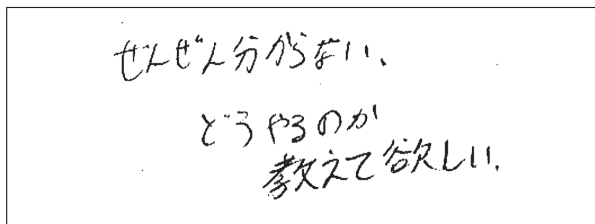 ぜんぜん分からない、
どうやるのか
教えて欲しい、